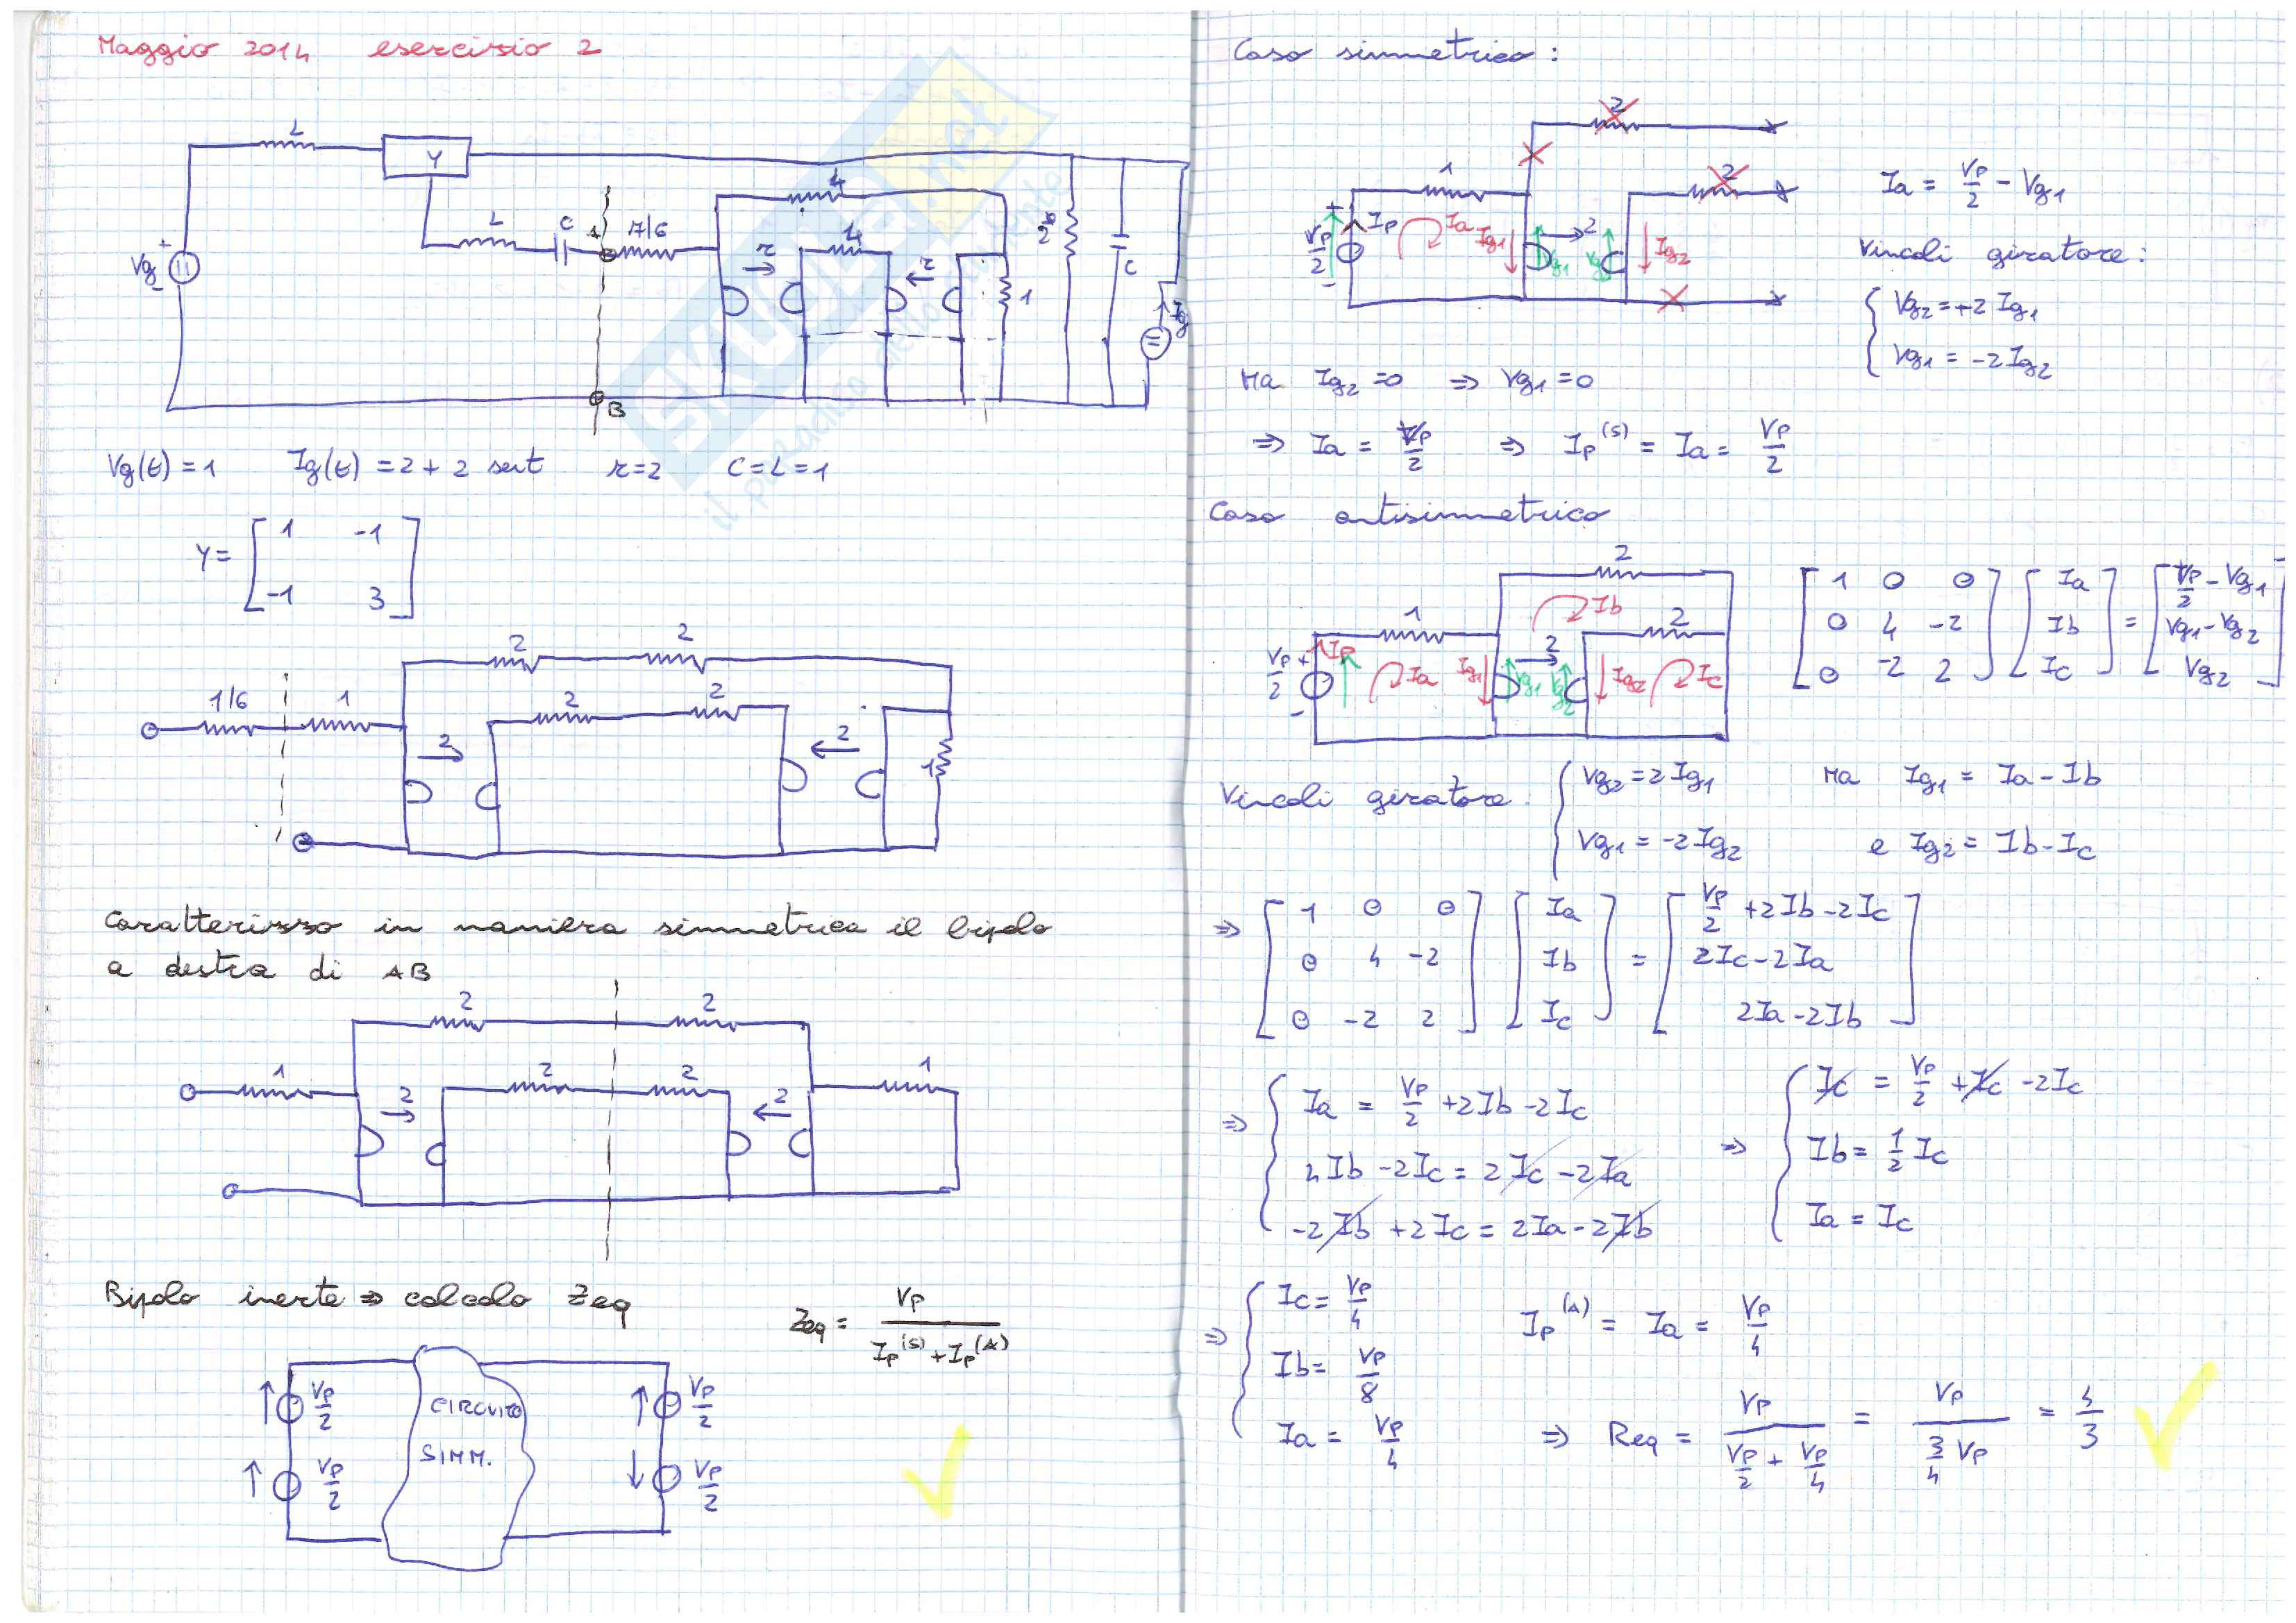 Maggio 2014 esercizio 2
L
Y
L C A 7/6
4
r 4 r
1
2
C
Vg + -
Ig
B
Vg(t) = 1 Ig(t) = 2 + 2 sent r=2 C=L=1
Y = [ 1 -1
-1 3 ]
2 2
1/6 1 2 2
2 2 1
Caratterizzo in maniera simmetrica il bipolo
a destra di AB
2 2
1 2 2 2 2 1
Bipolo inerte ⇒ calcolo Zeq
Zeq = Vp / (Ip(S) + Ip(A))
Vp/2 CIRCUITO SIMM. Vp/2
Vp/2 Vp/2
Caso simmetrico :
2
1 2
Vp/2 + - Ip Ia Ig1 Vg1 2 Vg2 Ig2
Ia = Vp/2 - Vg1
Vincoli giratore :
{ Vg2 = +2 Ig1
Vg1 = -2 Ig2
Ma Ig2 = 0 ⇒ Vg1 = 0
⇒ Ia = Vp/2 ⇒ Ip(S) = Ia = Vp/2
Caso antisimmetrico
2
1 Ib 2
Vp/2 + - Ip Ia Ig1 Vg1 2 Vg2 Ig2 Ic
[ 1 0 0
0 4 -2
0 -2 2 ] [ Ia
Ib
Ic ] = [ Vp/2 - Vg1
Vg1 - Vg2
Vg2 ]
Vincoli giratore { Vg2 = 2 Ig1 Ma Ig1 = Ia - Ib
Vg1 = -2 Ig2 e Ig2 = Ib - Ic
⇒ [ 1 0 0
0 4 -2
0 -2 2 ] [ Ia
Ib
Ic ] = [ Vp/2 + 2Ib - 2Ic
2Ic - 2Ia
2Ia - 2Ib ]
⇒ { Ia = Vp/2 + 2Ib - 2Ic
4Ib - 2Ic = 2Ic - 2Ia
-2Ib + 2Ic = 2Ia - 2Ib
⇒ { Ic = Vp/2 + Ic - 2Ic
Ib = 1/2 Ic
Ia = Ic
⇒ { Ic = Vp/4
Ib = Vp/8
Ia = Vp/4
Ip(A) = Ia = Vp/4
⇒ Req = Vp / (Vp/2 + Vp/4) = Vp / (3/4 Vp) = 4/3
SKUOLA.net
il paradiso dello studente